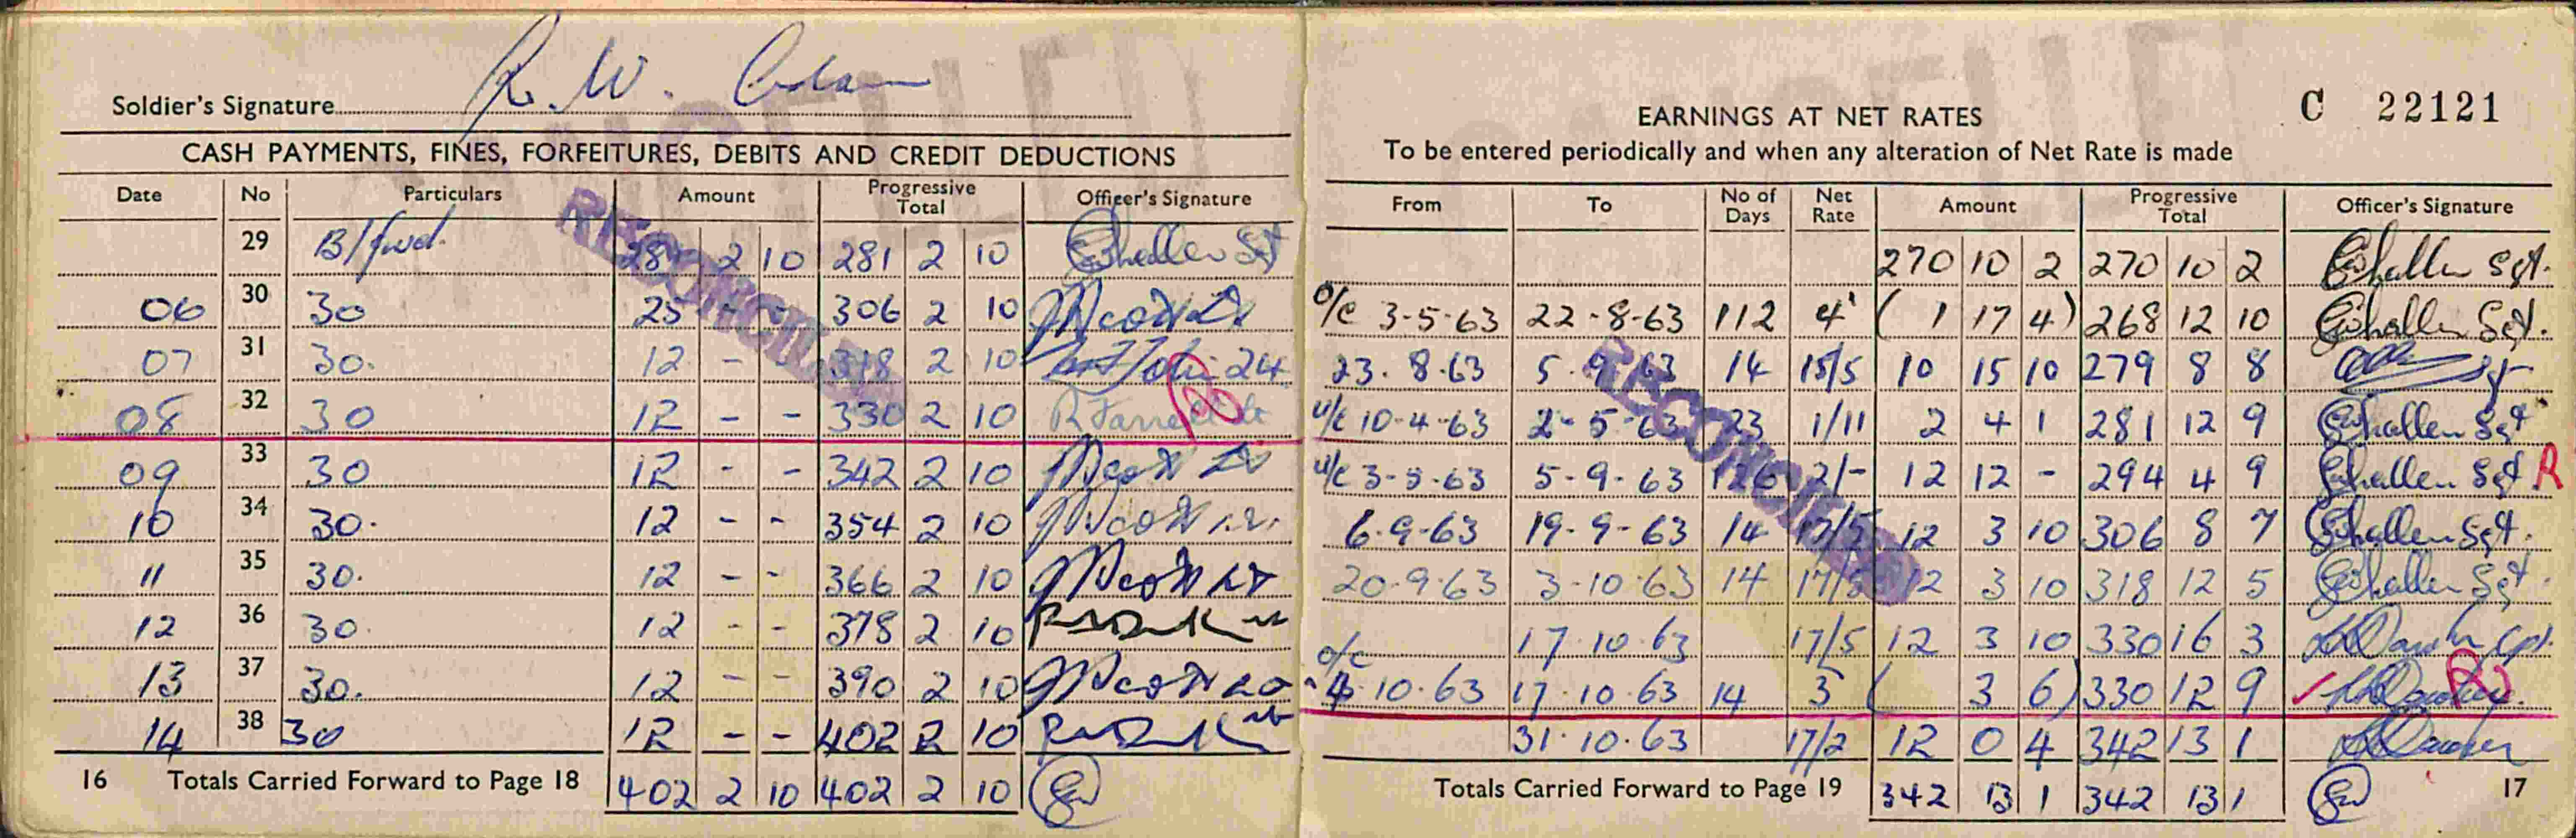 Soldier's Signature R. W.
CASH PAYMENTS, FINES, FORFEITURES, DEBITS AND CREDIT DEDUCTIONS
Date No Particulars Amount Progressive Total Officer's Signature
29 B/fwd. 281 2 10 281 2 10 Challen Sgt
06 30 30 25 - - 306 2 10
07 31 30. 12 - - 318 2 10
08 32 30 12 - - 330 2 10
09 33 30 12 - - 342 2 10
10 34 30. 12 - - 354 2 10
11 35 30. 12 - - 366 2 10
12 36 30. 12 - - 378 2 10
13 37 30. 12 - - 390 2 10
14 38 30 12 - - 402 2 10
16 Totals Carried Forward to Page 18 402 2 10 402 2 10
RECONCILED
CANCELLED
C 22121
EARNINGS AT NET RATES
To be entered periodically and when any alteration of Net Rate is made
From To No of Days Net Rate Amount Progressive Total Officer's Signature
270 10 2 270 10 2 Challen Sgt.
o/c 3-5-63 22-8-63 112 4' ( 1 17 4) 268 12 10 Challen Sgt.
23.8.63 5.9.63 14 15/5 10 15 10 279 8 8 Sgt
u/c 10-4-63 2-5-63 23 1/11 2 4 1 281 12 9 Challen Sgt
u/c 3-5-63 5-9-63 126 2/- 12 12 - 294 4 9 Challen Sgt R
6-9-63 19-9-63 14 17/5 12 3 10 306 8 7 Challen Sgt.
20.9.63 3-10-63 14 17/5 12 3 10 318 12 5 Challen Sgt.
17.10.63 17/5 12 3 10 330 16 3 Cpl.
o/c 4.10.63 17.10.63 14 3 ( 3 6) 330 12 9
31.10.63 17/2 12 0 4 342 13 1
Totals Carried Forward to Page 19 342 13 1 342 13 1 17
RECONCILED